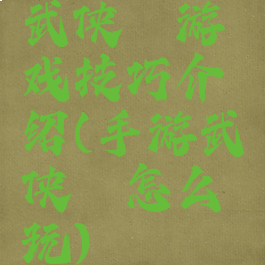 武侠 游
戏技巧介
绍(手游武
侠 怎么
玩)